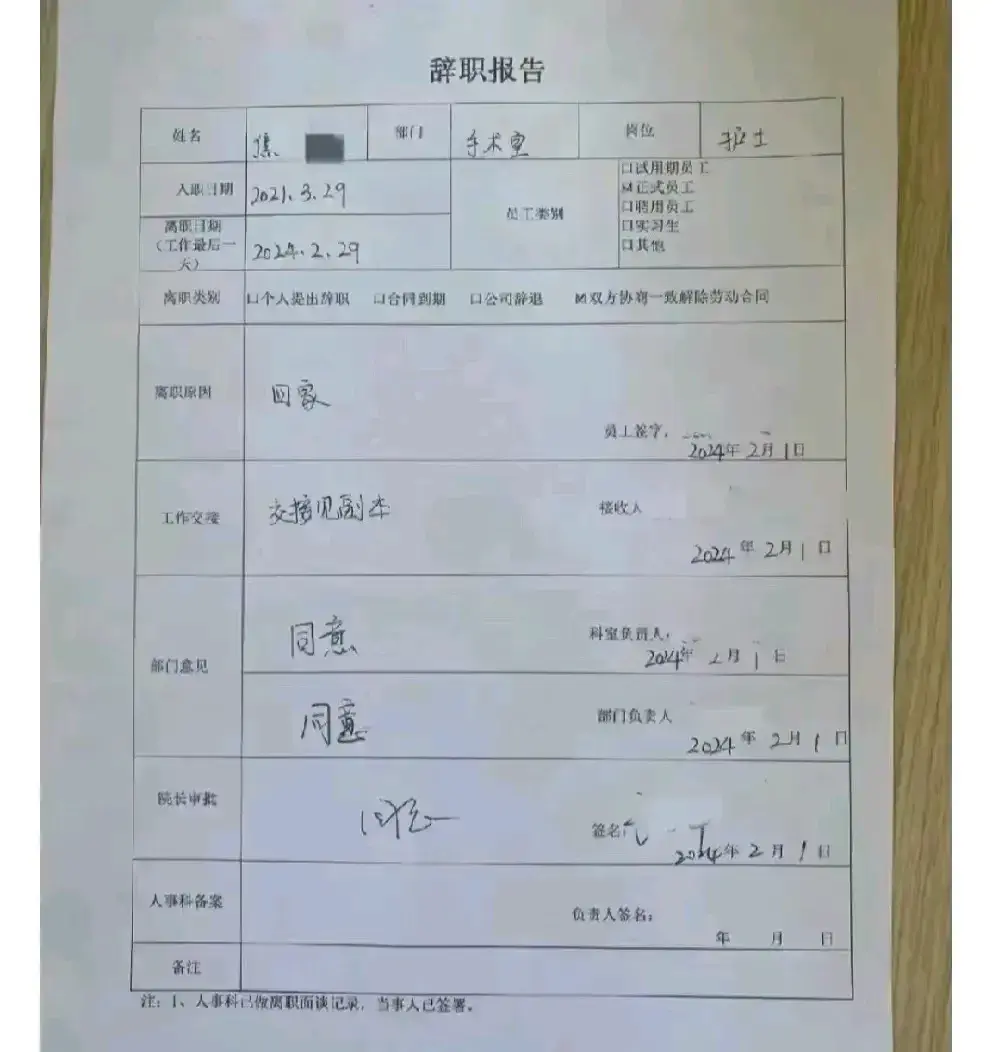 辞职报告
姓名 焦 部门 手术室 岗位 护士
入职日期 2021.3.29 员工类别
口试用期员工
☑正式员工
口聘用员工
口实习生
口其他
离职日期
（工作最后一
天）
2024.2.29
离职类别 口个人提出辞职 口合同到期 口公司辞退 ☑双方协商一致解除劳动合同
离职原因 回家
员工签字：
2024年2月1日
工作交接 交接见副本 接收人
2024年2月1日
部门意见
同意 科室负责人：
2024年2月1日
同意 部门负责人
2024年2月1日
院长审批 同意 签名：
2024年2月1日
人事科备案 负责人签名：
年 月 日
备注
注：1、人事科已做离职面谈记录，当事人已签署。